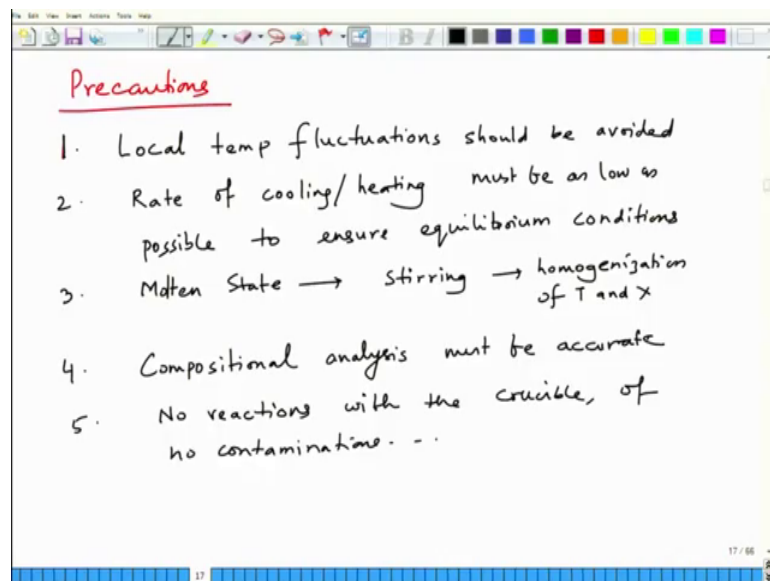 File Edit View Insert Actions Tools Help
B I
Precautions
1. Local temp fluctuations should be avoided
2. Rate of cooling/heating must be as low as
possible to ensure equilibrium conditions
3. Molten State → Stirring → homogenization
of T and X
4. Compositional analysis must be accurate
5. No reactions with the crucible, of
no contaminations. - .
17 / 66
17